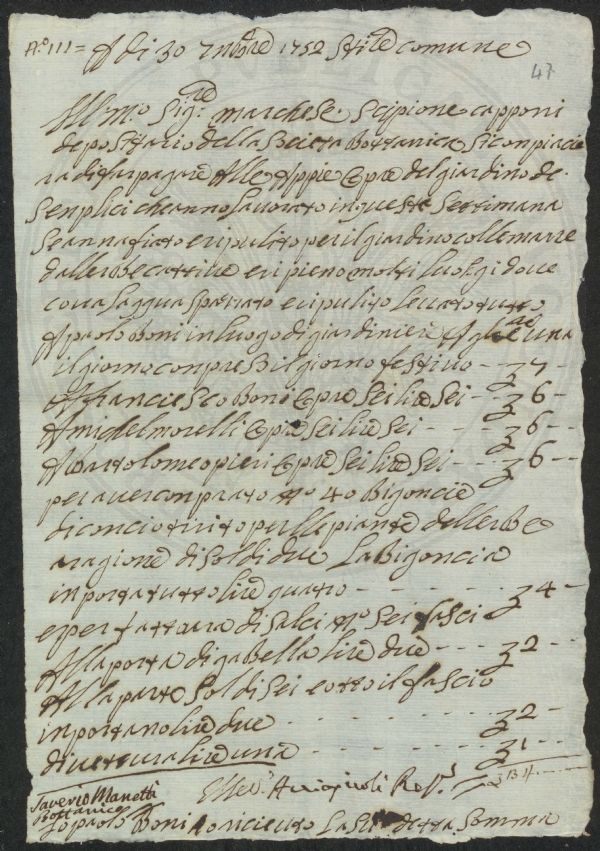 N.o 111 = A di 30 7mbre 1752 Stile comune
47
All Ill.mo Sig.re marchese Scipione capponi
depositario della Societa Bottanica si conpiacie
ra di far pagare Alle Appie opre del giardino de
Senplici che anno lavorato in questa Settimana
Se annafiato e ripulito per il giardino colle marre
dallerbe cattive e ripieno molti luogi dove
cova lagqua spazzato e ripulito leccato tutto
A paolo Boni in luogo di giardiniere A lire una
il giorno conpreso il giorno festivo - - 7 -
A franciesco Boni opre sei lire sei - - 6 -
A michel morelli opre sei lire sei - - 6 -
A bartolomeo pieri opre sei lire sei - - - 6 -
per aver conprato no 40 Bigoncie
di concio trito per lle piante dellerbe
a ragione di soldi due la Bigoncia
inporta tutto lire quatro - - - - 4 -
e per tattara di salci no sei fasci
Alla porta di gabella lire due - - - 2 -
Alla parte soldi sei e otto il fascio
inportano lire due - - - - 2 -
di vettura lire una - - - - 1 -
Saverio Manetti
Bottanico
Arrigucoli 34
Io paolo Boni o ricieuto la sudetta somma